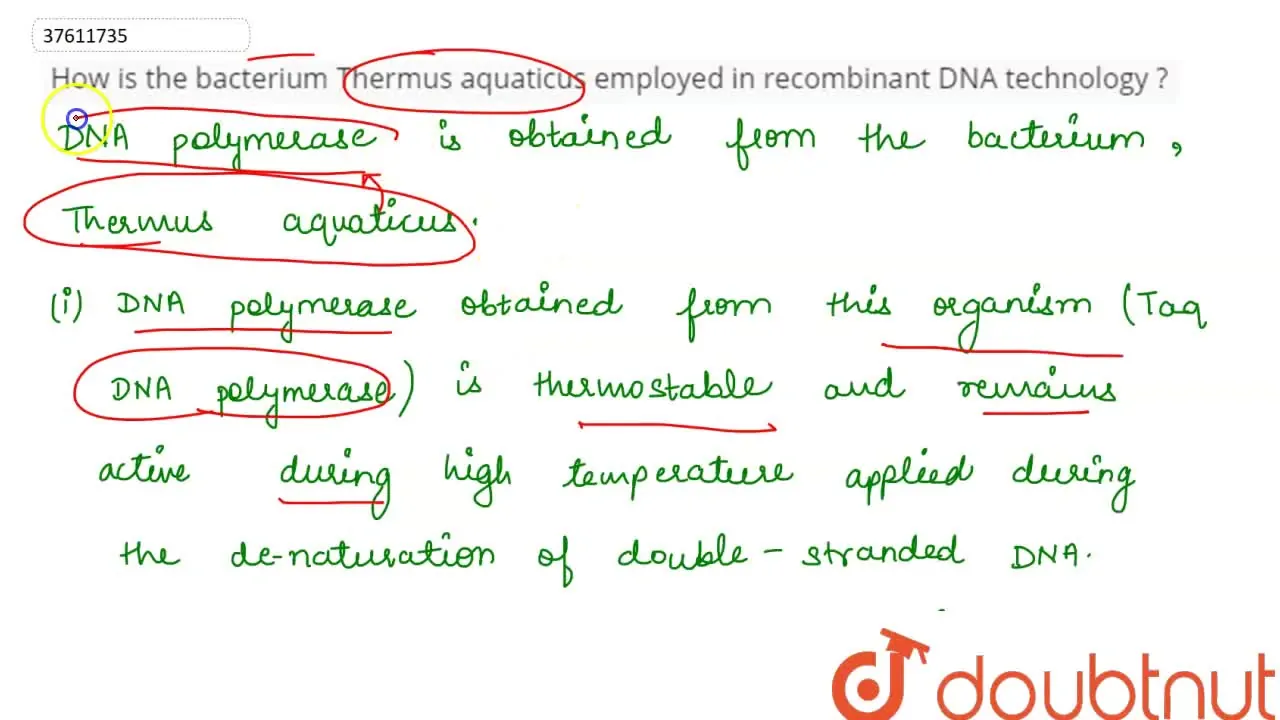 37611735
How is the bacterium Thermus aquaticus employed in recombinant DNA technology ?
DNA polymerase is obtained from the bacterium,
Thermus aquaticus.
(i) DNA polymerase obtained from this organism (Taq
DNA polymerase) is thermostable and remains
active during high temperature applied during
the de-naturation of double-stranded DNA.
doubtnut